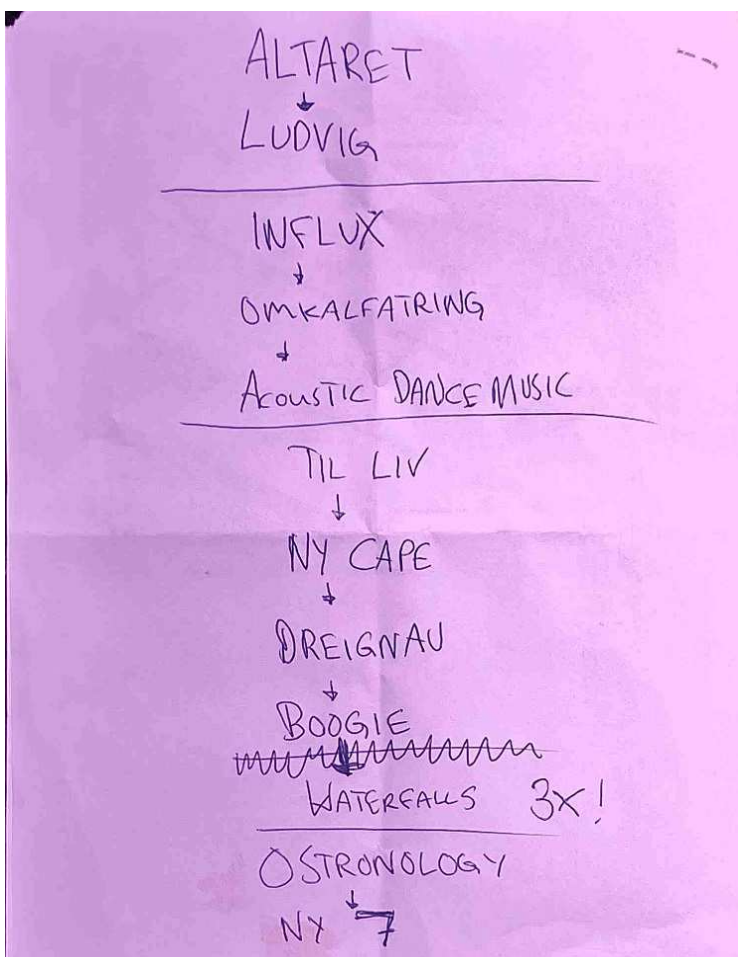 ALTARET
LUDVIG
INFLUX
OMKALFATRING
ACOUSTIC DANCE MUSIC
TIL LIV
NY CAPE
DREIGNAU
BOOGIE
WATERFALLS 3X!
OSTRONOLOGY
NY 7